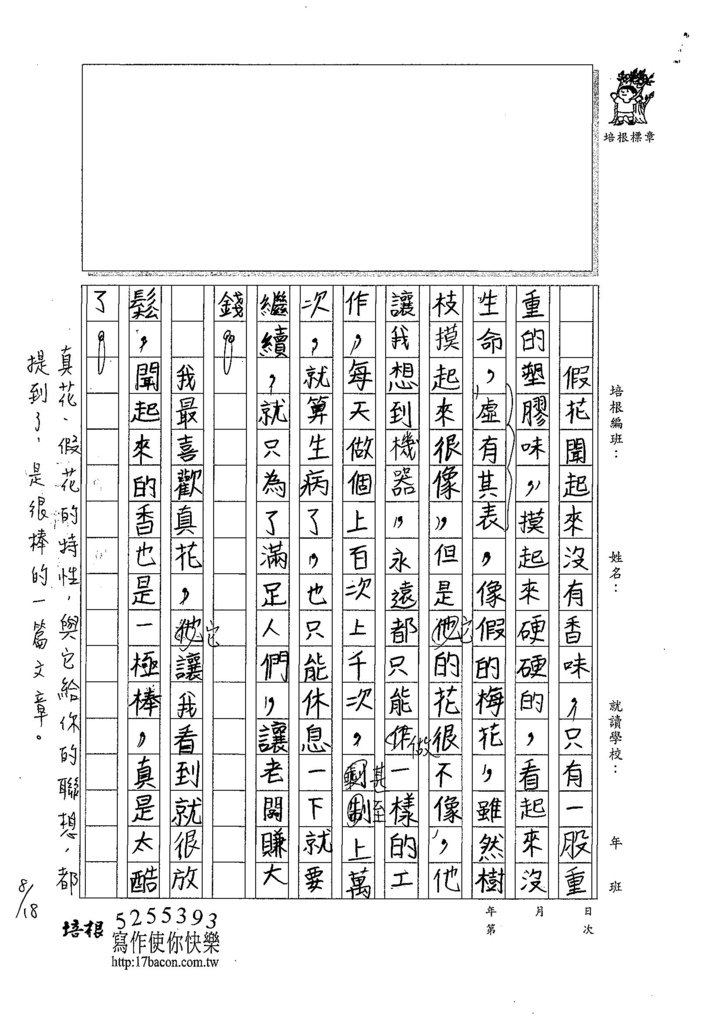 培根標章
培根編班：
姓名：
就讀學校：
年 班
年 月 日
第 次
假花聞起來沒有香味，只有一股重
重的塑膠味，摸起來硬硬的，看起來沒
生命，虛有其表，像假的梅花，雖然樹
枝摸起來很像，但是他它的花很不像，他
讓我想到機器，永遠都只能作做一樣的工
作，每天做個上百次上千次，剩制甚至上萬
次，就算生病了，也只能休息一下就要
繼續，就只為了滿足人們，讓老闆賺大
錢。
我最喜歡真花，他它讓我看到就很放
鬆，聞起來的香也是一極棒，真是太酷
了。
真花、假花的特性，與它給你的聯想，都
提到了，是很棒的一篇文章。
8/18
培根 5255393
寫作使你快樂
http:17bacon.com.tw